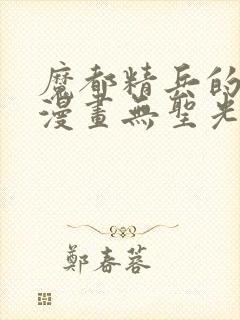 魔都精兵的
漫畫無聖光
鄭春蓉